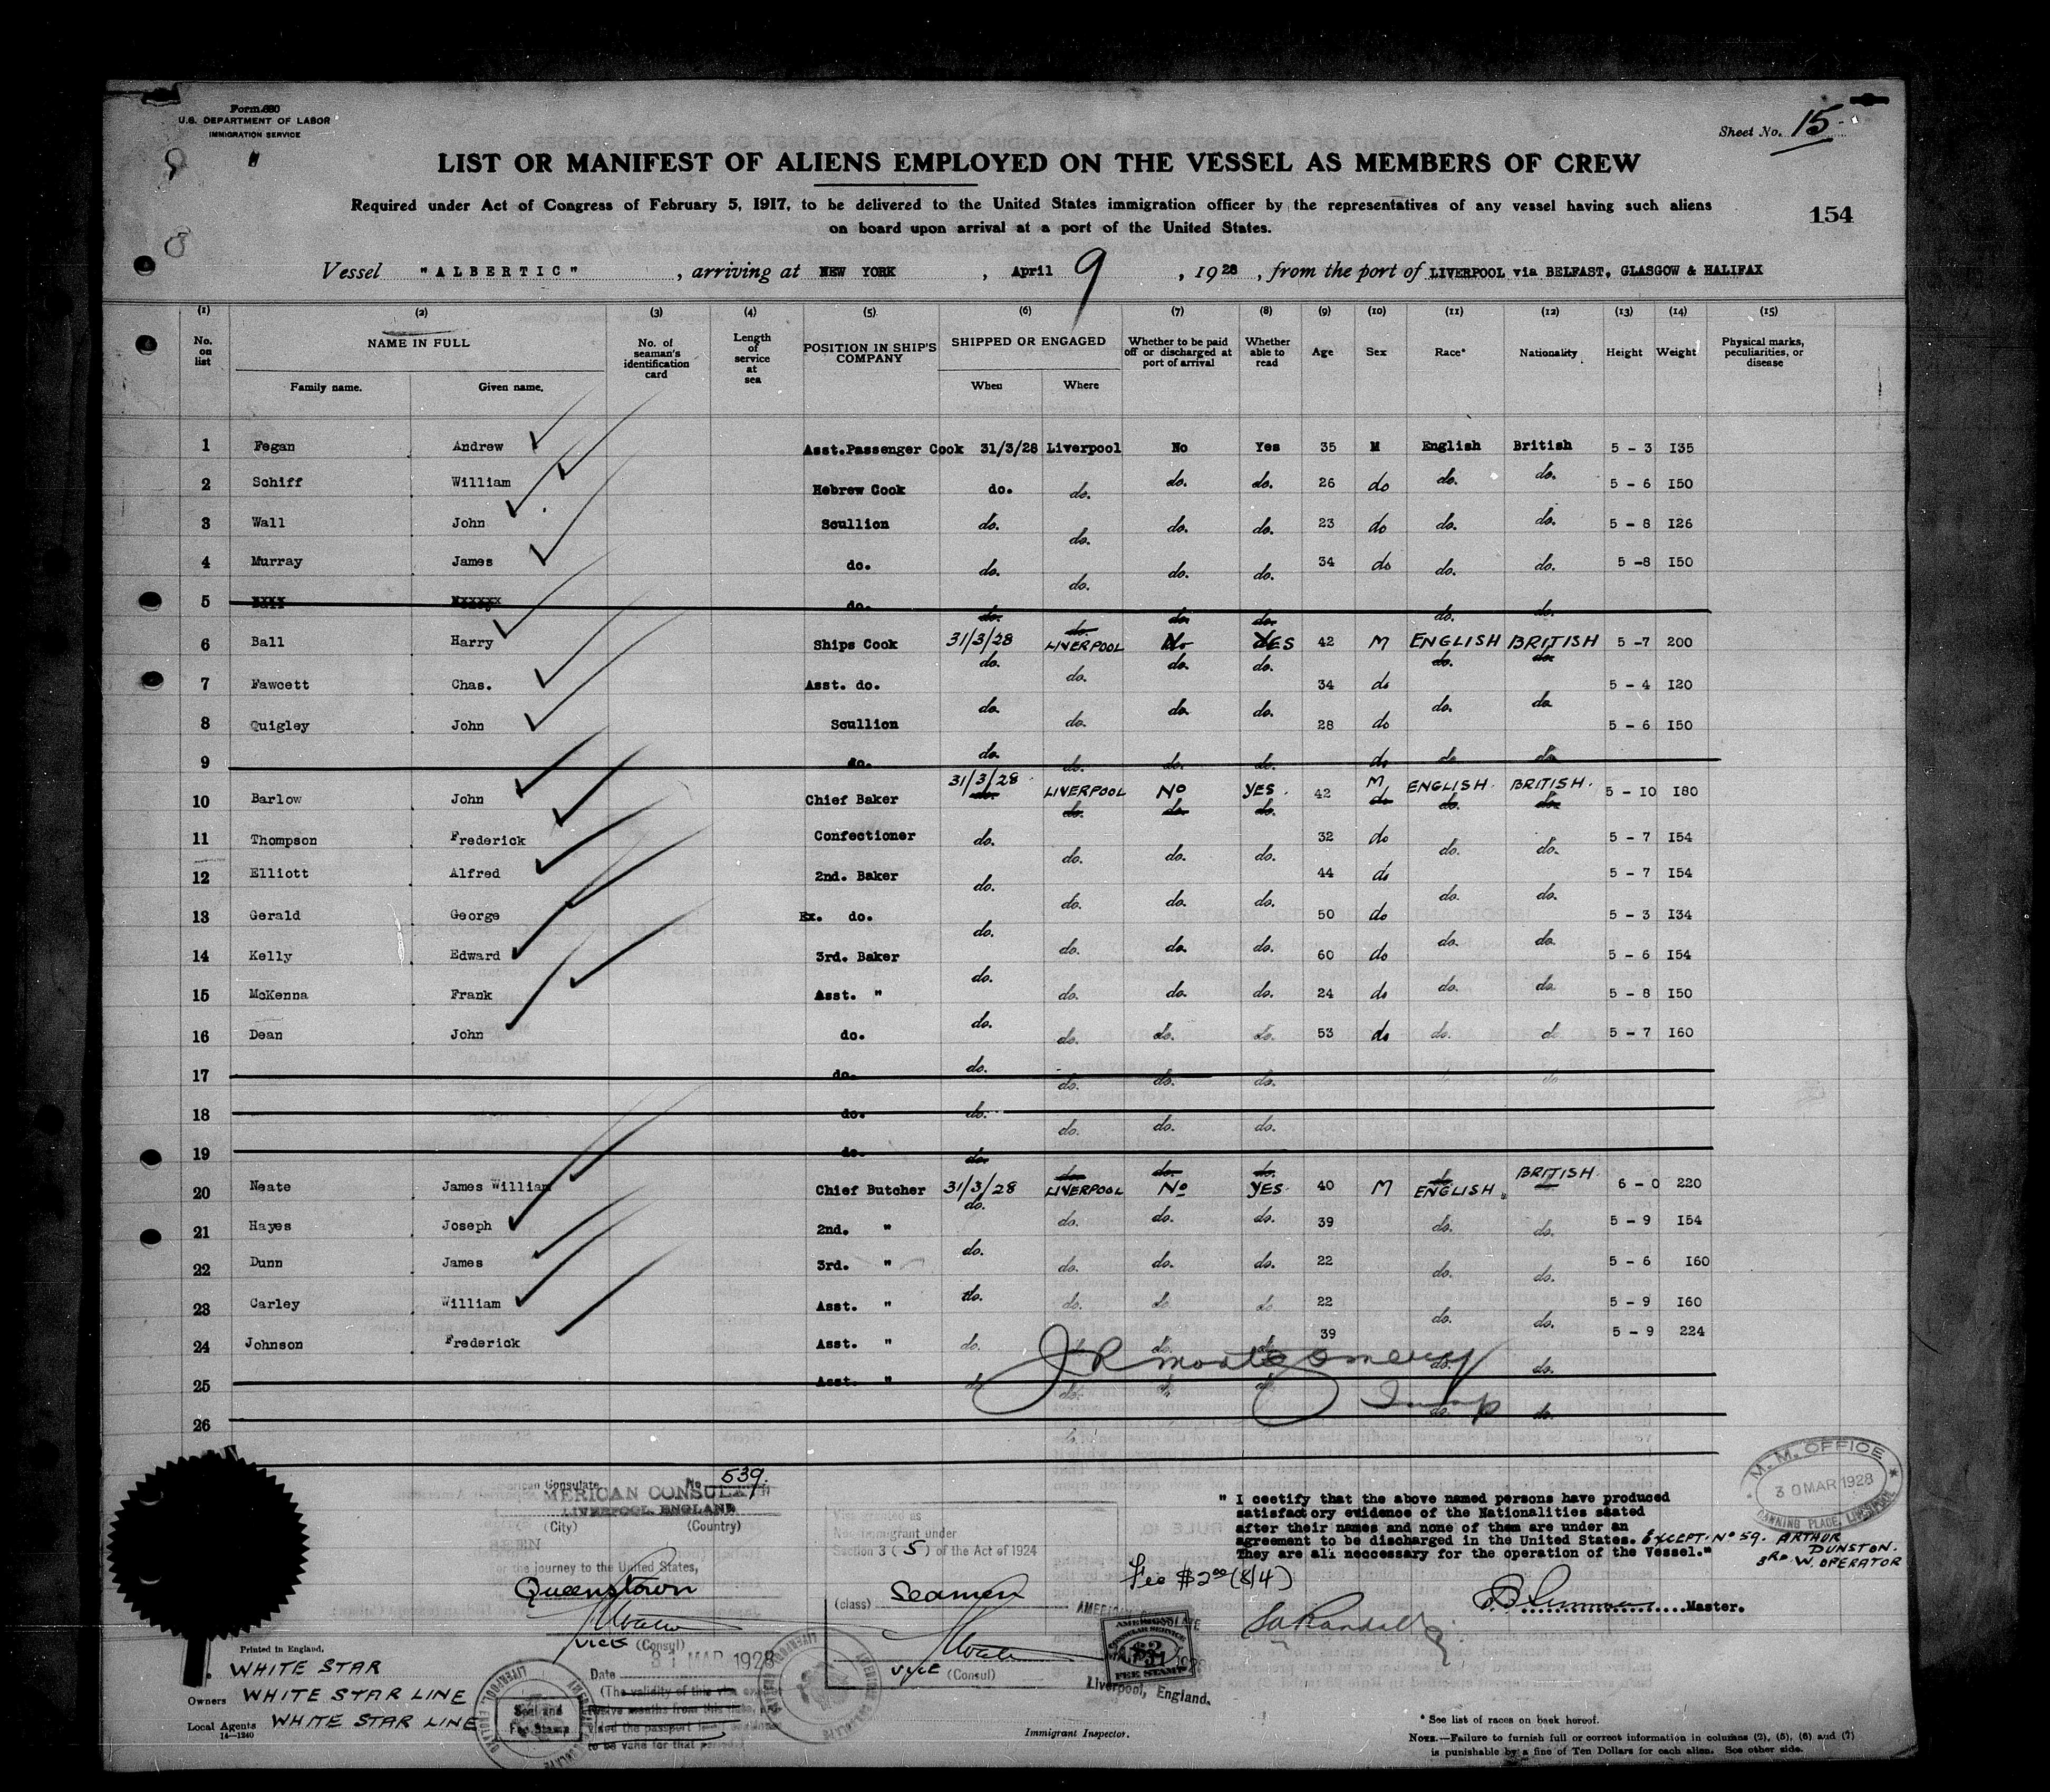 Form 680
U.S. DEPARTMENT OF LABOR
IMMIGRATION SERVICE
Sheet No. 15
LIST OR MANIFEST OF ALIENS EMPLOYED ON THE VESSEL AS MEMBERS OF CREW
Required under Act of Congress of February 5, 1917, to be delivered to the United States immigration officer by the representatives of any vessel having such aliens
on board upon arrival at a port of the United States.
154
Vessel "ALBERTIC", arriving at NEW YORK, April 9, 1928, from the port of LIVERPOOL via BELFAST, GLASGOW & HALIFAX
(1) (2) (3) (4) (5) (6) (7) (8) (9) (10) (11) (12) (13) (14) (15)
No. on list NAME IN FULL Family name. Given name. No. of seaman's identification card Length of service at sea POSITION IN SHIP'S COMPANY SHIPPED OR ENGAGED When Where Whether to be paid off or discharged at port of arrival Whether able to read Age Sex Race* Nationality Height Weight Physical marks, peculiarities, or disease
1 Fegan Andrew Asst.Passenger Cook 31/3/28 Liverpool No Yes 35 M English British 5 - 3 I35
2 Schiff William Hebrew Cook do. do. do. do. 26 do do. do. 5 - 6 I50
3 Wall John Scullion do. do. do. do. 23 do do. do. 5 - 8 I26
4 Murray James do. do. do. do. do. 34 do do. do. 5 -8 I50
5 do. do. do. do. do. do. do.
6 Ball Harry Ships Cook 31/3/28 LIVERPOOL No YES 42 M ENGLISH BRITISH 5 -7 200
7 Fawcett Chas. Asst. do. do. do. do. do. 34 do do. do. 5 - 4 I20
8 Quigley John Scullion do. do. do. do. 28 do do. do. 5 - 6 I50
9 do. do. do. do. do. do. do. do.
10 Barlow John Chief Baker 31/3/28 LIVERPOOL No YES. 42 M ENGLISH. BRITISH. 5 - IO I80
11 Thompson Frederick Confectioner do. do. do. do. 32 do do. do. 5 - 7 I54
12 Elliott Alfred 2nd. Baker do. do. do. do. 44 do do. do. 5 - 7 I54
13 Gerald George Ex. do. do. do. do. do. 50 do do. do. 5 - 3 I34
14 Kelly Edward 3rd. Baker do. do. do. do. 60 do do. do. 5 - 6 I54
15 McKenna Frank Asst. " do. do. do. do. 24 do do. do. 5 - 8 I50
16 Dean John do. do. do. do. do. 53 do do. do 5 - 7 I60
17 do. do. do. do. do.
18 do. do. do. do. do.
19 do. do. do. do. do.
20 Neate James William Chief Butcher 31/3/28 LIVERPOOL No YES. 40 M ENGLISH BRITISH. 6 - 0 220
21 Hayes Joseph 2nd. " do. do. do. do. 39 do. do. 5 - 9 I54
22 Dunn James 3rd. " do. do. do. do. 22 do. do. 5 - 6 I60
23 Carley William Asst. " do. do. do. do 22 do. do. 5 - 9 I60
24 Johnson Frederick Asst. " do. do. do. do. 39 do. do. 5 - 9 224
JR Montgomery
25 Asst. " do. do. do. do.
Insp
26 do. do.
American Consulate No 539.
AMERICAN CONSULATE
LIVERPOOL, ENGLAND
(City) (Country)
SEEN
for the journey to the United States,
Queenstown
VICE (Consul)
31 MAR 1928
Date
(The validity of this visa
twelve months from this date,
to be valid for that period.)
Seal and
Fee Stamp
Visa granted as
Non-immigrant under
Section 3 (5) of the Act of 1924
(class) Seamen
VICE (Consul)
Fee $2.00 (8/4)
AMERICAN
CONSULAR SERVICE
$2
FEE STAMP
Liverpool, England.
" I cectify that the above named persons have produced
satisfactory evidence of the Nationalities stated
after their names and none of them are under an
agreement to be discharged in the United States. EXCEPT. No 59. ARTHUR
DUNSTON.
They are all neccessary for the operation of the Vessel." 3RD W. OPERATOR
Master.
M. M. OFFICE
30 MAR 1928
CANNING PLACE, LIVERPOOL
Printed in England.
WHITE STAR
Owners WHITE STAR LINE
Local Agents WHITE STAR LINE
14—1240
Immigrant Inspector.
* See list of races on back hereof.
NOTE.—Failure to furnish full or correct information in columns (2), (5), (6) and (7)
is punishable by a fine of Ten Dollars for each alien. See other side.